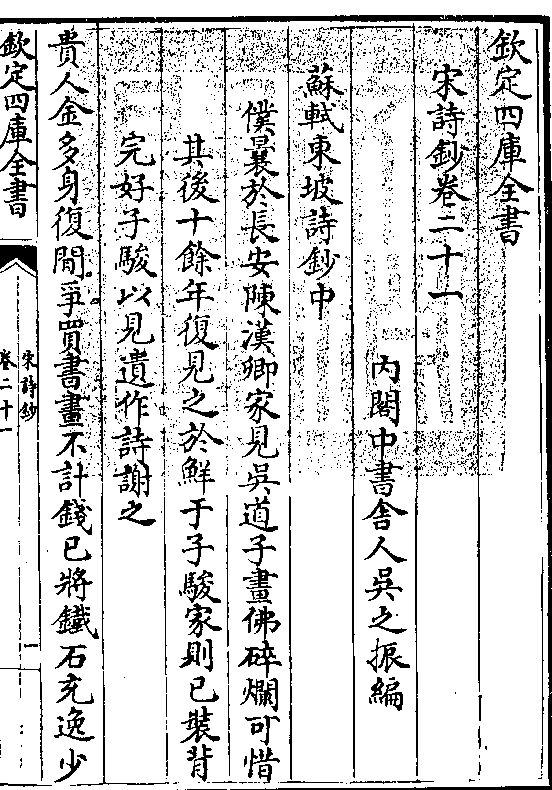 欽定四庫全書
宋詩鈔卷二十一
內閣中書舍人吳之振編
蘇軾東坡詩鈔中
僕曩於長安陳漢卿家見吳道子畫佛碎爛可惜
其後十餘年復見之於鮮于子駿家則已裝背
完好子駿以見遺作詩謝之
貴人金多身復閒爭買書畫不計錢已將鐵石充逸少
欽定四庫全書
宋詩鈔
卷二十一
一